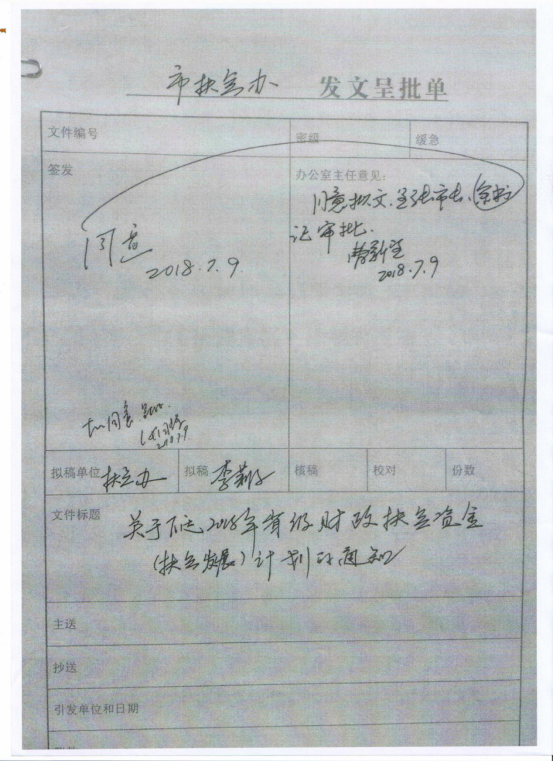 市扶贫办 发文呈批单
文件编号
密级
缓急
签发
办公室主任意见:
同意拟文.呈张市长、余书
记审批.
2018.7.9
同意
2018.7.9.
同意
2018.7.9
拟稿单位 扶贫办
拟稿 李
核稿
校对
份数
文件标题
关于下达2018年省级财政扶贫资金
(扶贫发展)计划的通知
主送
抄送
引发单位和日期